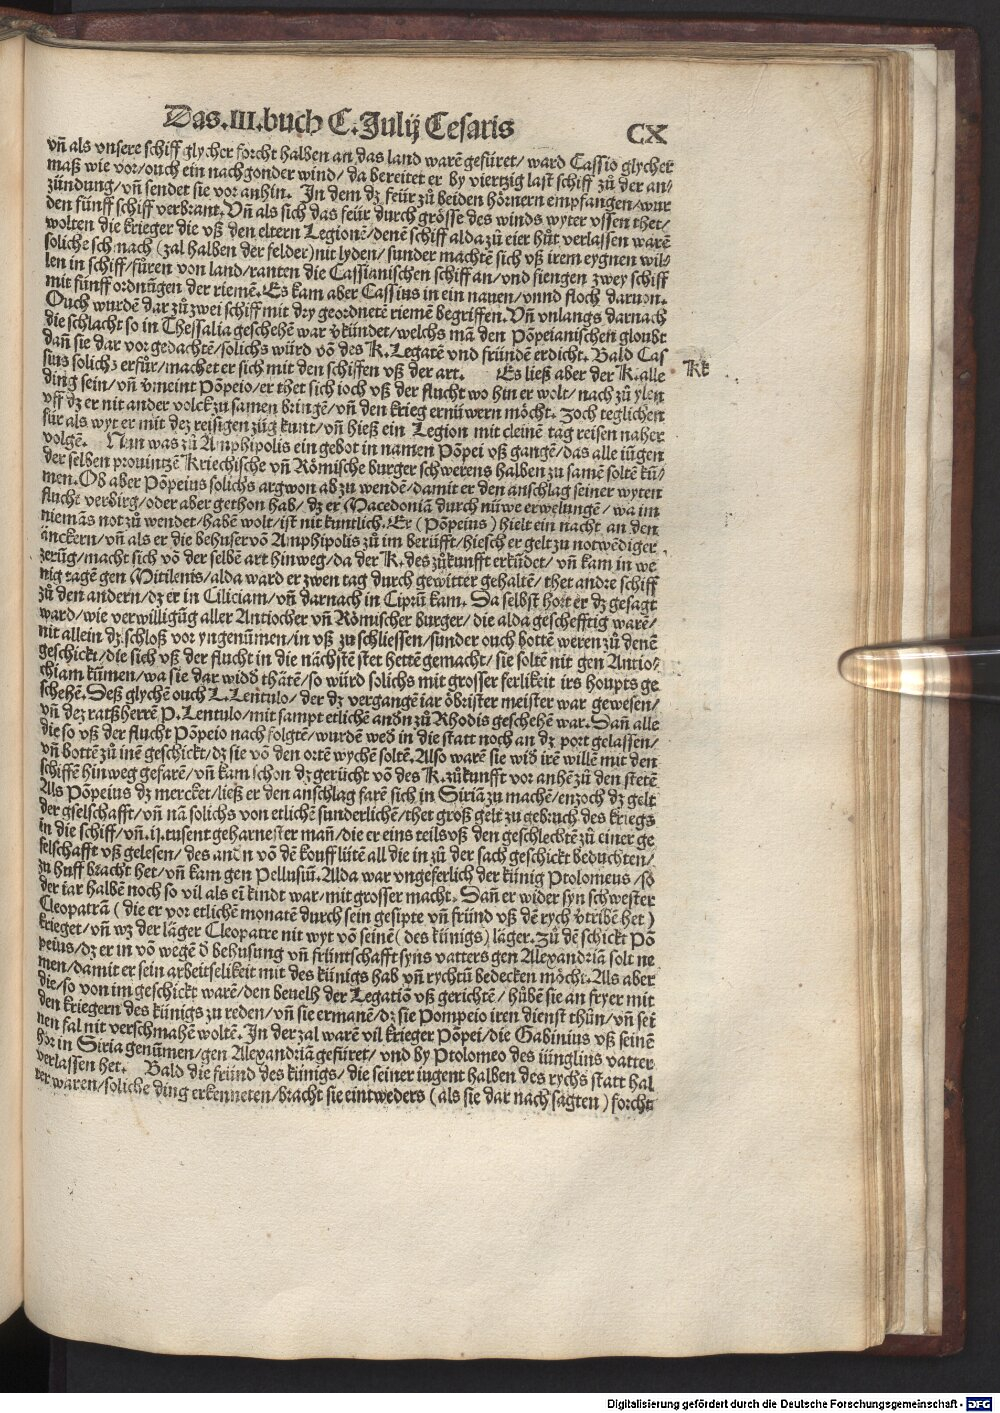 Das .III. buch C. Julij Cesaris
CX
vñ als vnsere schiff glycher forcht halben an das land warẽ gefüret/ ward Cassio glycher
maß wie vor/ ouch ein nachgonder wind/ da bereitet er by viertzig last schiff zů der an/
zündung/ vñ sendet sie vor anhin. In dem dz feür zů beiden hörnern empfangen/ wur
den fünff schiff verbrant. Vñ als sich das feür durch grösse des winds wyter vssen thet/
wolten die krieger die vß den eltern Legionẽ/ denẽ schiff alda zů eier hůt verlassen warẽ
soliche schmach (zal halben der felder) nit lyden/ sunder machtẽ sich vß irem eygnen wil/
len in schiff/ fůren von land/ ranten die Cassianischen schiff an/ vnd fiengen zwey schiff
mit fünff ordnũgen der riemẽ. Es kam aber Cassius in ein nauen/ vnnd floch daruon.
Ouch wurdẽ dar zů zwei schiff mit dry geordnetẽ riemẽ begriffen. Vñ vnlangs darnach
die schlacht so in Thessalia geschehẽ war v̓kündet/ welchs mã den Põpeianischen gloubt
dañ sie dar vor gedachtẽ/ solichs würd võ des K. Legatẽ vnd fründẽ erdicht. Bald Cas
sius solichs erfůr/ machet er sich mit den schiffen vß der art. Es ließ aber der K. alle
Kk
ding sein/ vñ v̓meint Põpeio/ er thet sich ioch vß der flucht wo hin er wolt/ nach zů ylen
vff dz er nit ander volck zu samen bringẽ/ vñ den krieg ernüwern möcht. Zoch teglichen
für als wyt er mit dez reisigen züg kunt/ vñ hieß ein Legion mit cleinẽ tag reisen naher
volgẽ. Nun was zů Amphipolis ein gebot in namen Põpei vß gangẽ/ das alle iügen
der selben prouintzẽ Kriechische vñ Römische burger schwerens halben zu samẽ soltẽ kũ/
men. Ob aber Põpeius solichs argwon ab zu wendẽ/ damit er den anschlag seiner wyten
flucht verbirg/ oder aber gethon hab/ dz er Macedoniã durch nüwe erwelungẽ/ wa im
niemãs not zů wendet/ habẽ wolt/ ist nit kuntlich. Er (Põpeius) hielt ein nacht an den
änckern/ vñ als er die behuser võ Amphipolis zů im berüfft/ hiesch er gelt zu notwẽdiger
zerũg/ macht sich võ der selbẽ art hinweg/ da der K. des zůkunfft erkũdet/ vñ kam in we
nig tagẽ gen Mitilenis/ alda ward er zwen tag durch gewitter gehaltẽ/ thet andre schiff
zů den andern/ dz er in Ciliciam/ vñ darnach in Ciprũ kam. Da selbst hort er dz gesagt
ward/ wie verwilligũg aller Antiocher vñ Römischer burger/ die alda geschefftig warẽ/
nit allein dz schloß vor yngenũmen/ in vß zu schliessen/ sunder ouch bottẽ weren zů denẽ
geschickt/ die sich vß der flucht in die nächstẽ stet hettẽ gemacht/ sie soltẽ nit gen Antio/
chiam kũmen/ wa sie dar widď thätẽ/ so würd solichs mit grosser ferlikeit irs houpts ge
schehẽ. Deß glychẽ ouch L. Lentulo/ der dz vergangẽ iar öbrister meister war gewesen/
vñ dez ratßherrẽ P. Lentulo/ mit sampt etlichẽ andn zů Rhodis geschehẽ war. Dañ alle
die so vß der flucht Põpeio nach folgtẽ/ wurdẽ wed̓ in die statt noch an dz port gelassen/
vñ bottẽ zů inẽ geschickt/ dz sie võ den ortẽ wychẽ soltẽ. Also warẽ sie wid̓ irẽ willẽ mit den
schiffẽ hinweg gefarẽ/ vñ kam schon dz gerücht võ des K. zůkunfft vor anhẽ zů den stetẽ
Als Põpeius dz mercket/ ließ er den anschlag farẽ sich in Siriã zu machẽ/ enzoch dz gelt
der gselschafft/ vñ nã solichs von etlichẽ sunderlichẽ/ thet groß gelt zu gebruch des kriegs
in die schiff/ vñ .ij. tusent geharnester mañ/ die er eins teils vß den geschlechtẽ zů einer ge
selschafft vß gelesen/ des andn võ dẽ kouff lütẽ all die in zů der sach geschickt beduchten/
zu huff bracht het/ vñ kam gen Pellusiũ. Alda war vngeferlich der künig Ptolomeus/ so
der iar halbẽ noch so vil als eĩ kindt war/ mit grosser macht. Dañ er wider syn schwester
Cleopatrã (die er vor etlichẽ monatẽ durch sein gesipte vñ fründ vß dẽ rych v̓tribẽ het)
krieget/ vñ wz der läger Cleopatre nit wyt võ seinẽ (des künigs) läger. Zů dẽ schickt Põ
peius/ dz er in võ wegẽ d̓ behusung vñ früntschafft syns vatters gen Alexandriã solt ne
men/ damit er sein arbeitselikeit mit des künigs hab vñ rychtũ bedecken möcht. Als aber
die/ so von im geschickt warẽ/ den beuelh der Legatiõ vß gerichtẽ/ hůbẽ sie an fryer mit
den kriegern des künigs zu reden/ vñ sie ermanẽ/ dz sie Pompeio iren dienst thůn/ vñ sei
nen fal nit verschmahẽ woltẽ. In der zal warẽ vil krieger Põpei/ die Gabinius vß seinẽ
hör in Siria genũmen/ gen Alexandriã gefüret/ vnd by Ptolomeo des iünglins vatter
verlassen het. Bald die fründ des künigs/ die seiner iugent halben des rychs statt hal
ter waren/ soliche ding erkenneten/ bracht sie eintweders (als sie dar nach sagten) forcht
Digitalisierung gefördert durch die Deutsche Forschungsgemeinschaft - DFG